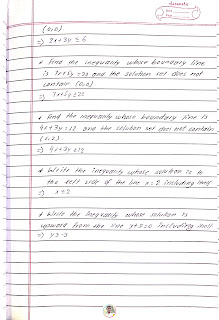 (0,0)
=) 2x+3y ≤ 6
* Find the inequality whose boundary line
is 7x+5y = 23 and the solution set does not
contain (0,0)
=)
* Find the inequality whose boundary line is
4x+3y = 12 and the solution set does not contain
=) 4x+3y ≥ 12
* Write the inequality whose solution is to
the left side of the line x = 2 including itself
=) x ≤ 2
* Write the inequality whose solution is
upward from the line y+3=0 including itself
=) y ≥ -3